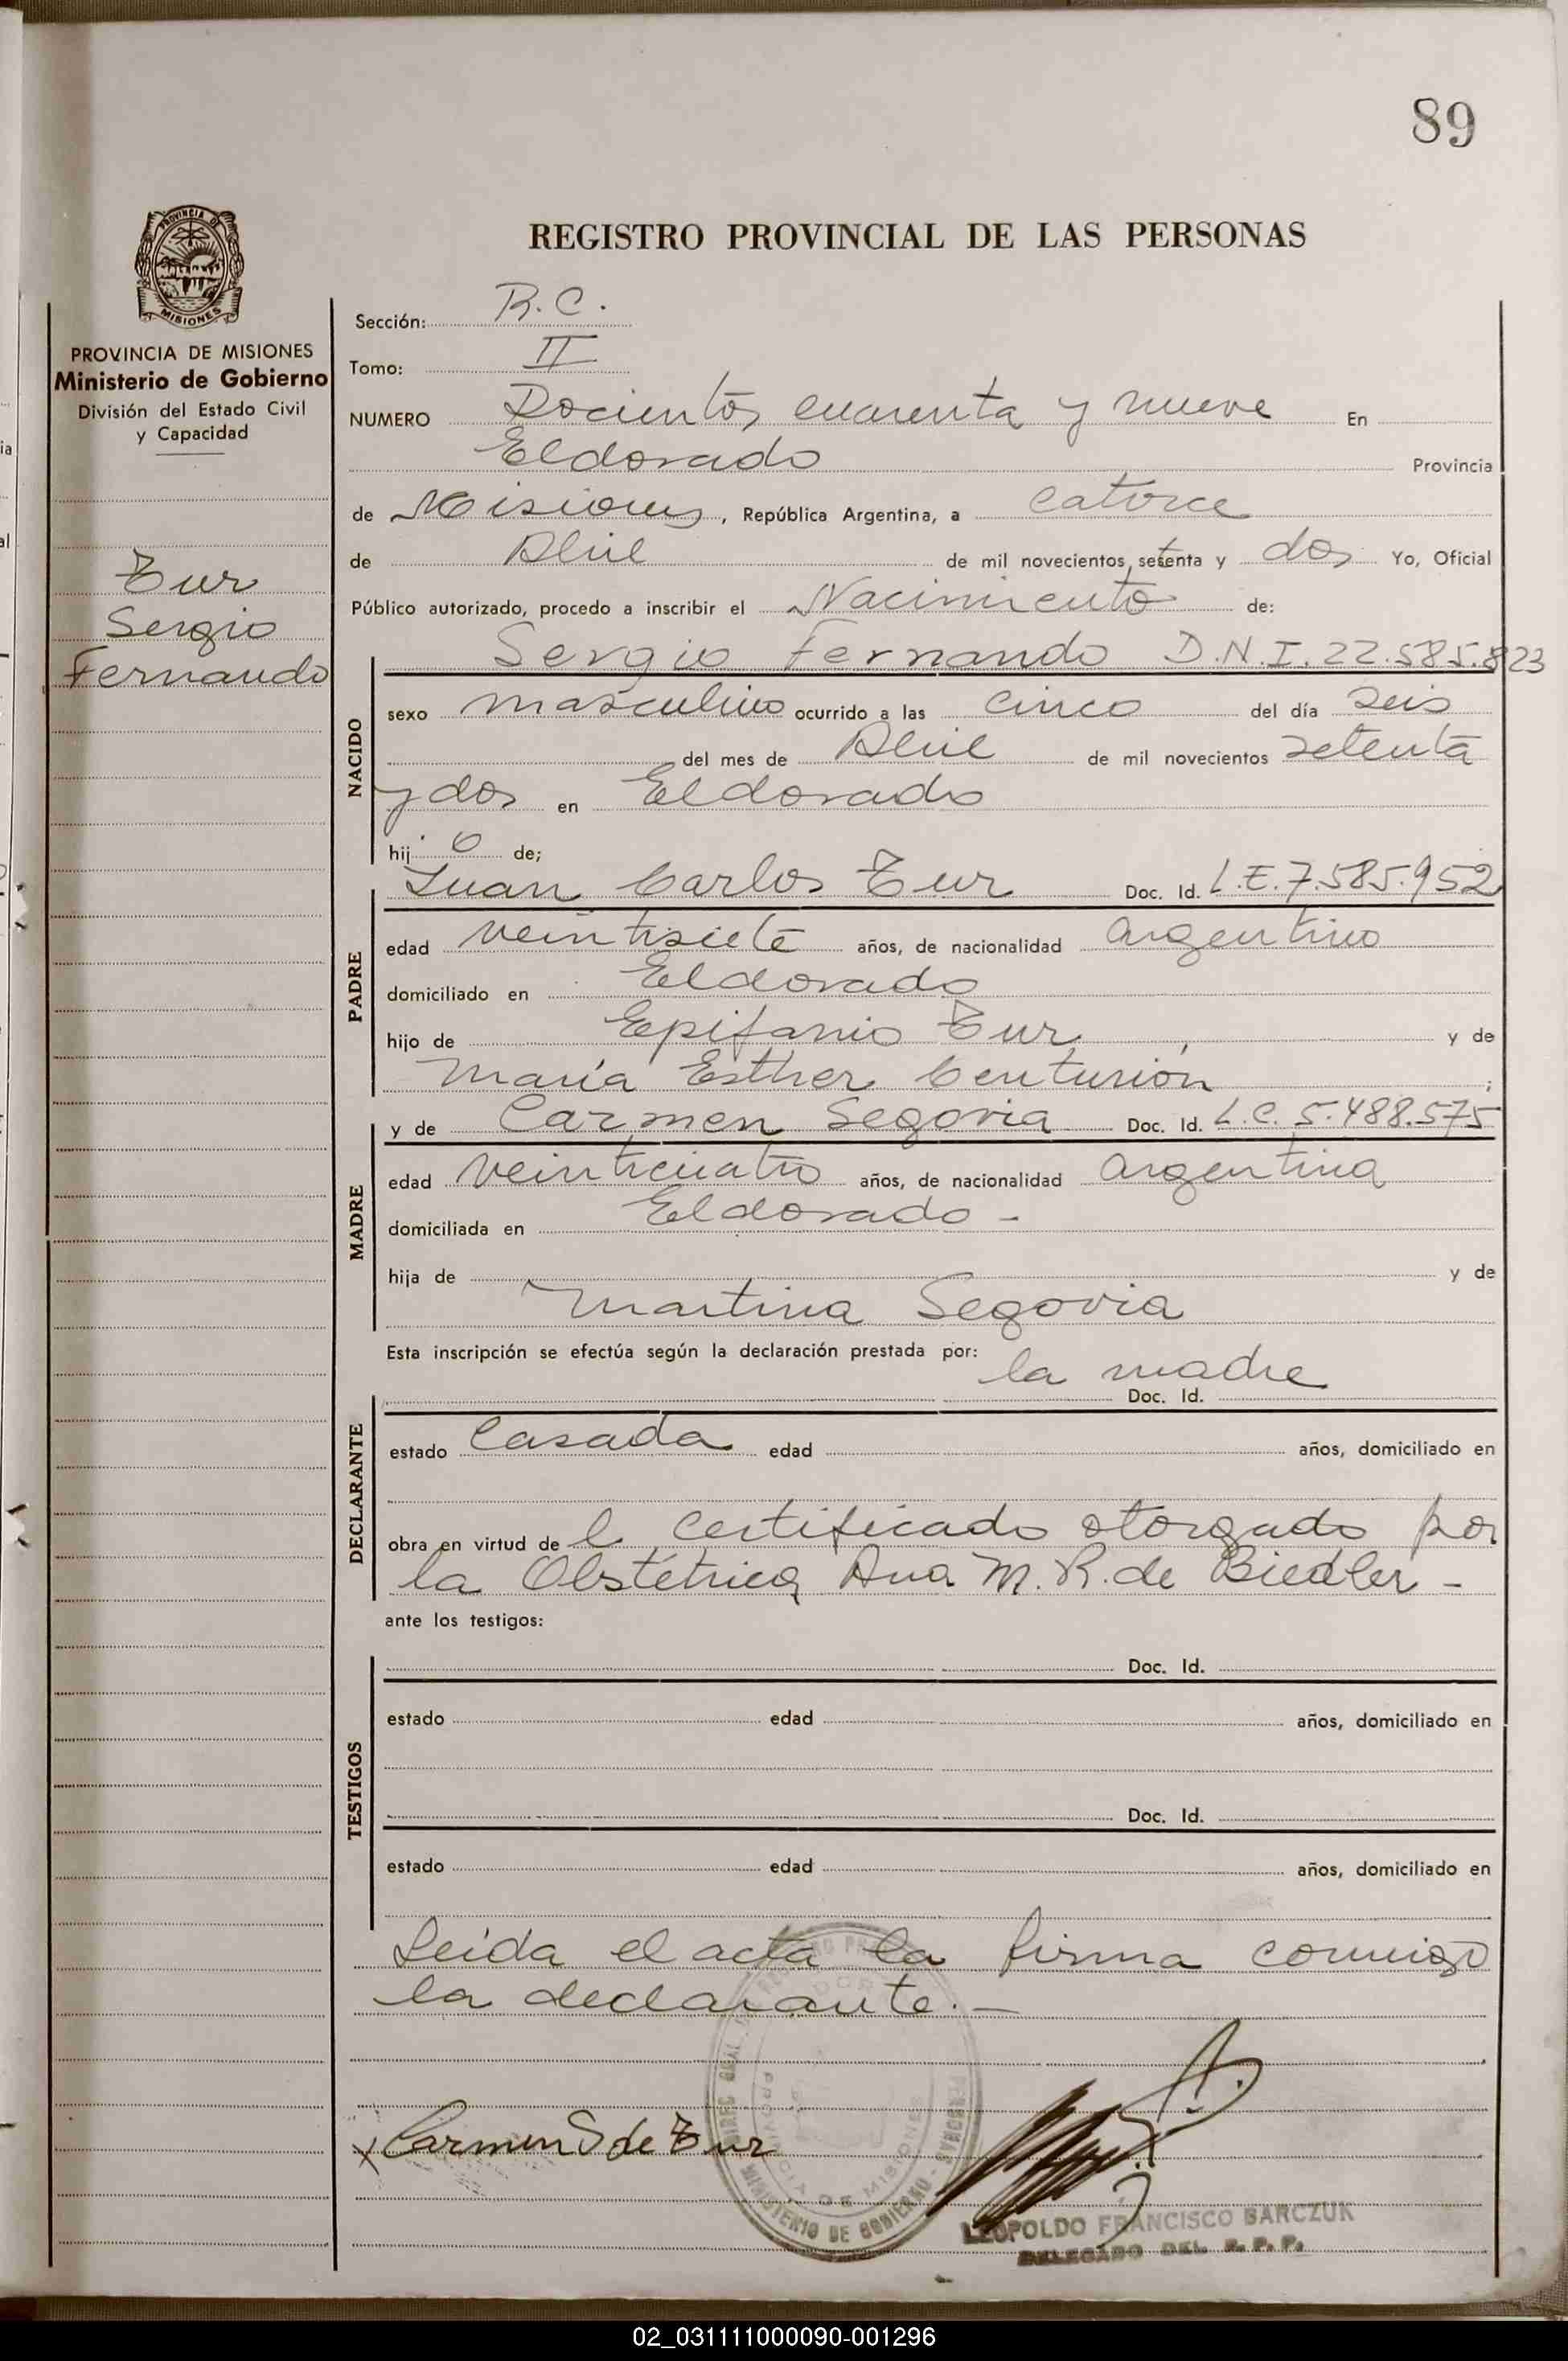 89
PROVINCIA DE
MISIONES
PROVINCIA DE MISIONES
Ministerio de Gobierno
División del Estado Civil
y Capacidad
Zur
Sergio
Fernando
REGISTRO PROVINCIAL DE LAS PERSONAS
Sección: R.C.
Tomo: II
NUMERO Docientos cuarenta y nueve En
Eldorado Provincia
de Misiones, República Argentina, a catorce
de Abril de mil novecientos setenta y dos Yo, Oficial
Público autorizado, procedo a inscribir el Nacimiento de:
Sergio Fernando D.N.I. 22.585.823
NACIDO
sexo masculino ocurrido a las cinco del día seis
del mes de Abril de mil novecientos setenta
y dos en Eldorado
hij o de;
Juan Carlos Zur Doc. Id. L.E. 7.585.952
PADRE
edad veintisiete años, de nacionalidad argentino
domiciliado en Eldorado
hijo de Epifanio Zur, y de
María Esther Centurión;
y de Carmen Segovia Doc. Id. L.C. 5.488.575
MADRE
edad veinticuatro años, de nacionalidad argentina
domiciliada en Eldorado -
hija de y de
Martina Segovia
Esta inscripción se efectúa según la declaración prestada por: la madre
Doc. Id.
DECLARANTE
estado Casada edad años, domiciliado en
obra en virtud de l certificado otorgado por
la Obstétrica Ana M. R. de Biedler -
ante los testigos:
Doc. Id.
TESTIGOS
estado edad años, domiciliado en
Doc. Id.
estado edad años, domiciliado en
Leída el acta la firma conmigo
la declarante. -
x Carmen S de Zur
MINISTERIO DE GOBIERNO
PROVINCIA DE MISIONES
PERSONAS
LEOPOLDO FRANCISCO BARCZUK
DELEGADO DEL R. P. P.
02_031111000090-001296